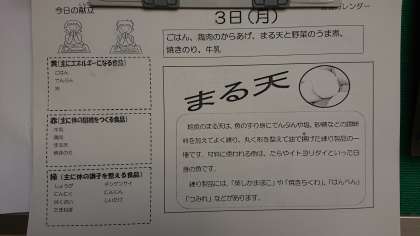 今日の献立
カレンダー
3日(月)
ごはん、鶏肉のからあげ、まる天と野菜のうま煮、
焼きのり、牛乳
黄(主にエネルギーになる食品)
ごはん
でんぷん
油
赤(主に体の組織をつくる食品)
牛乳
鶏肉
まる天
焼きのり
緑(主に体の調子を整える食品)
しょうが
にんにく
にんじん
たまねぎ
チンゲンサイ
こんにゃく
しいたけ
まる天
給食のまる天は、魚のすり身にでんぷんや塩、砂糖などの調味
料を加えてよく練り、丸く形を整えて油で揚げた練り製品の一
種です。材料に使われる魚は、たらやイトヨリダイといった白
身の魚です。
練り製品には、「蒸しかまぼこ」や「焼きちくわ」、「はんぺん」
「つみれ」などがあります。